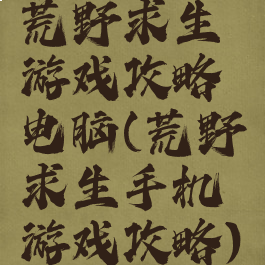 荒野求生
游戏攻略
电脑(荒野
求生手机
游戏攻略)